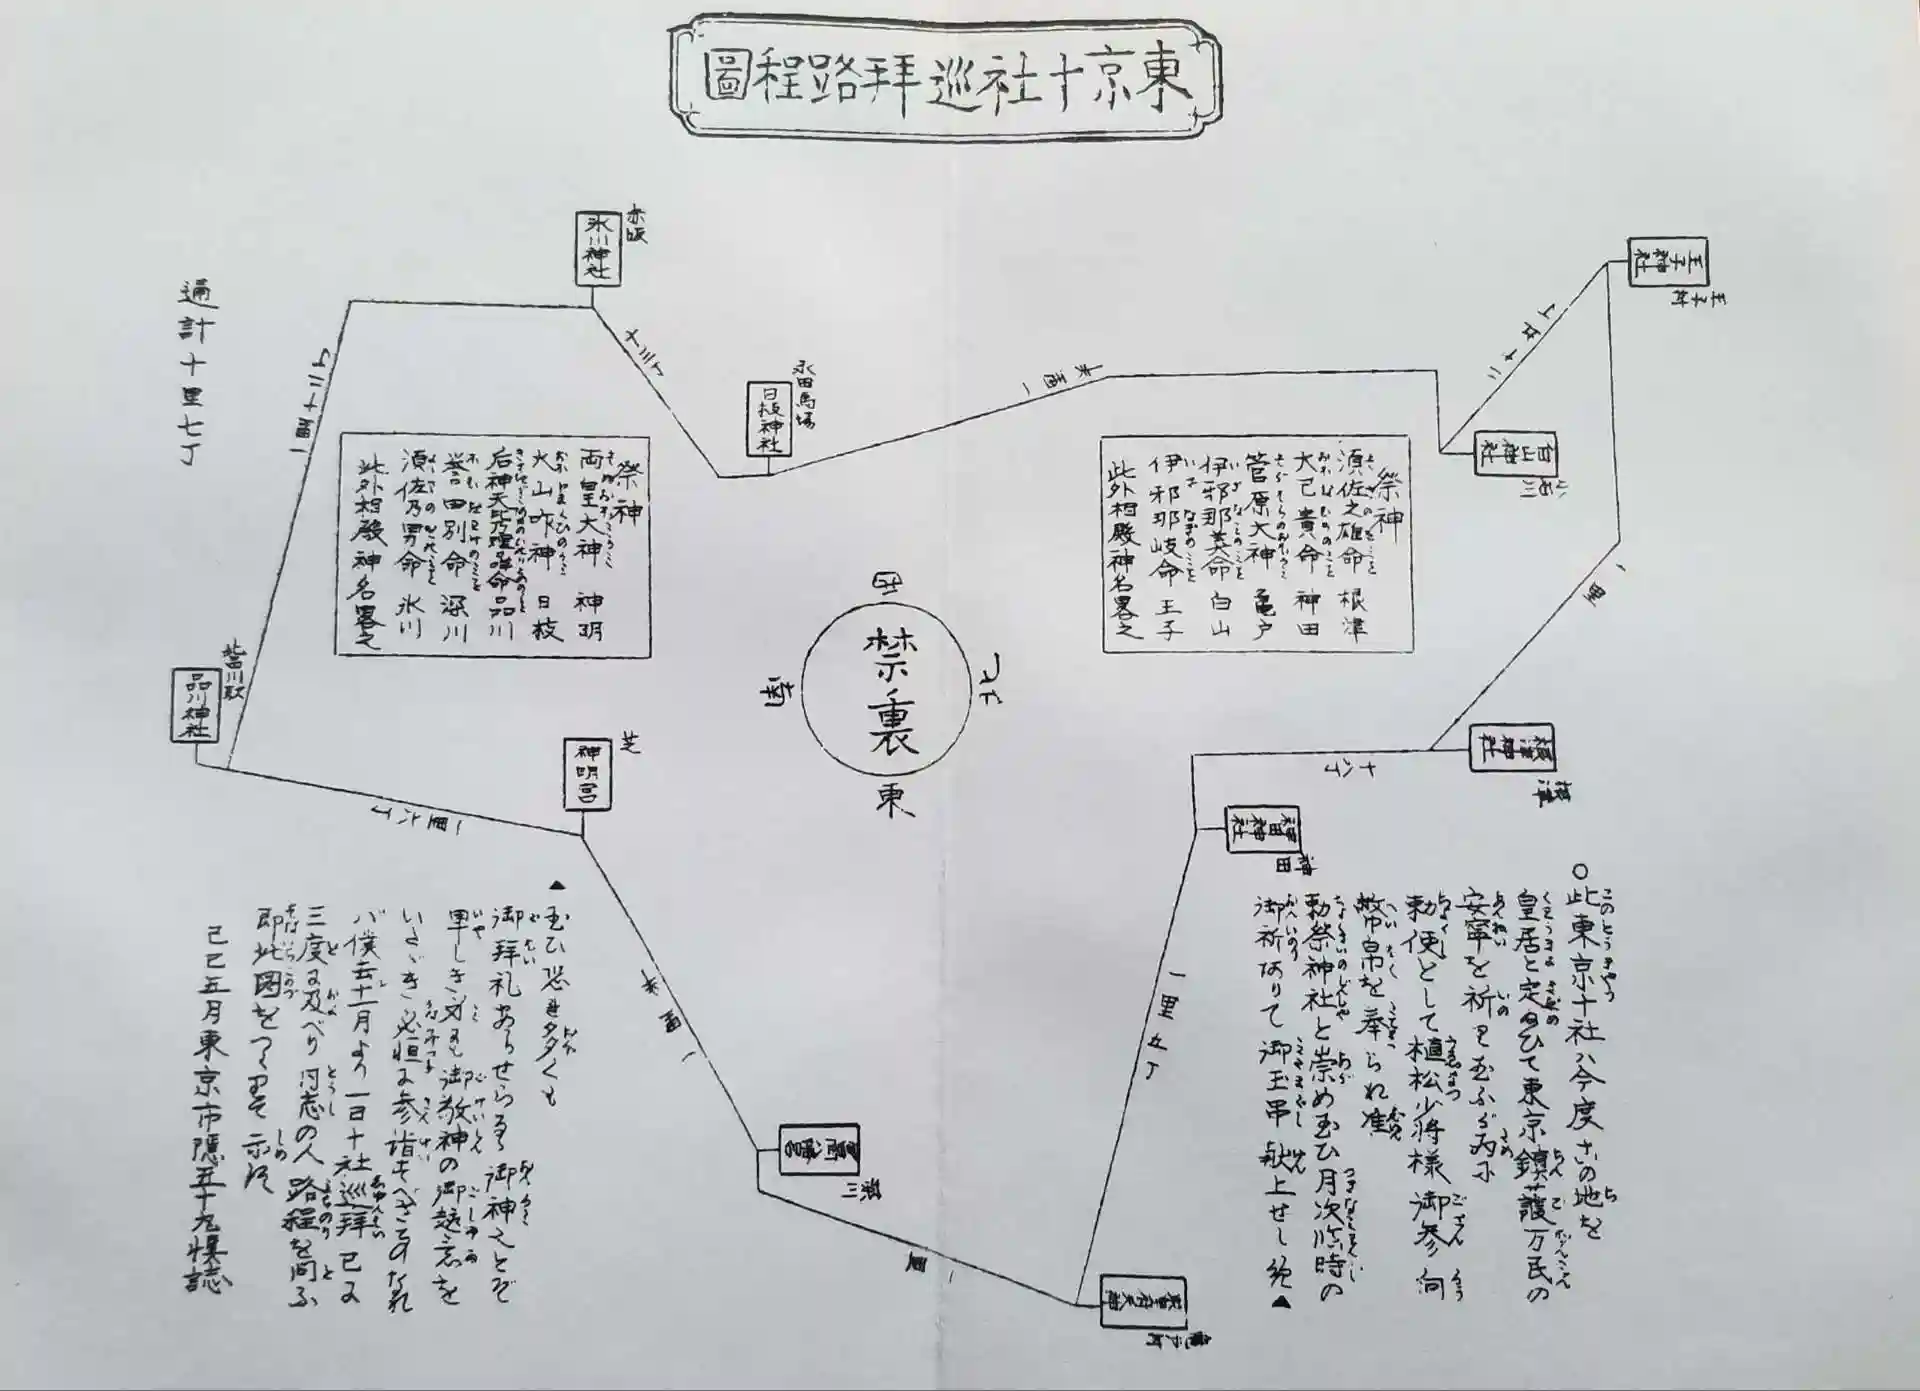 東京十社巡拜路程圖
王子神社
王子村
白山神社
小石川
二十五丁
一里
根津神社
根津
十八丁
神田神社
神田
一里五丁
亀戸町
一里
深川
一里半
神明宮
芝
一里六丁
品川神社
品川駅
一里十二丁
氷川神社
赤坂
十三丁
日枝神社
永田馬場
一里半
通計十里七丁
禁裏
東
西
南
北
祭神
須佐之雄命 根津
大己貴命 神田
菅原大神 亀戸
伊邪那美命 白山
伊邪那岐命 王子
此外相殿神名畧之
祭神
両皇大神 神明
大山咋神 日枝
后神天比乃理咩命 品川
誉田別命 深川
須佐乃男命 氷川
此外相殿神名畧之
○此東京十社ハ今度この地を
皇居と定めひて東京鎮護万民の
安寧を祈り玉ふが為に
勅使として植松少将様御参向
幣帛を奉られ准
勅祭神社と崇め玉ひ月次臨時の
御祈ありて御玉串献上せし絶▲
▲玉ひ恐き多くも
御拜礼あらせらるる御神々とぞ
卑しき身も御敬神の御趣意を
いただき必恒に参詣すべきことのなれ
バ僕去十一月より一日十社巡拜已に
三度に及べり同志の人路程を問ふ
即此図をつくりそ示す
己巳五月東京市隠五十九愼誌